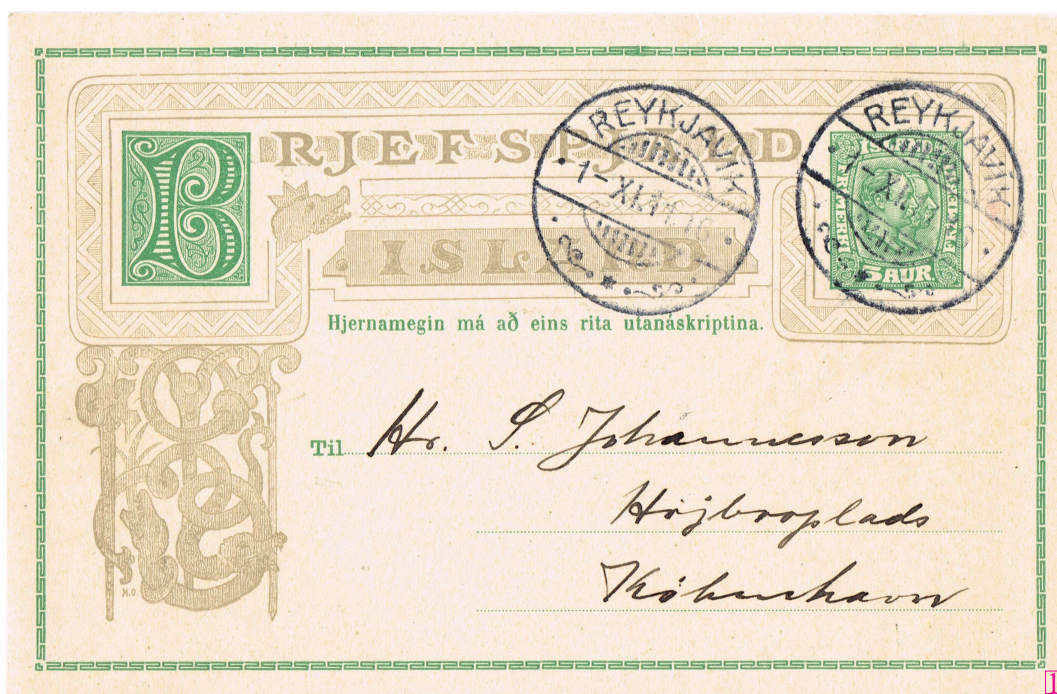 BRJEFSPJALD
ISLAND.
REYKJAVIK
1-XI.11.
REYKJAVIK
5 AUR
Hjernamegin má að eins rita utanáskriptina.
Til Hr. S. Johannesson
Højbroplads
København
H.O.
1